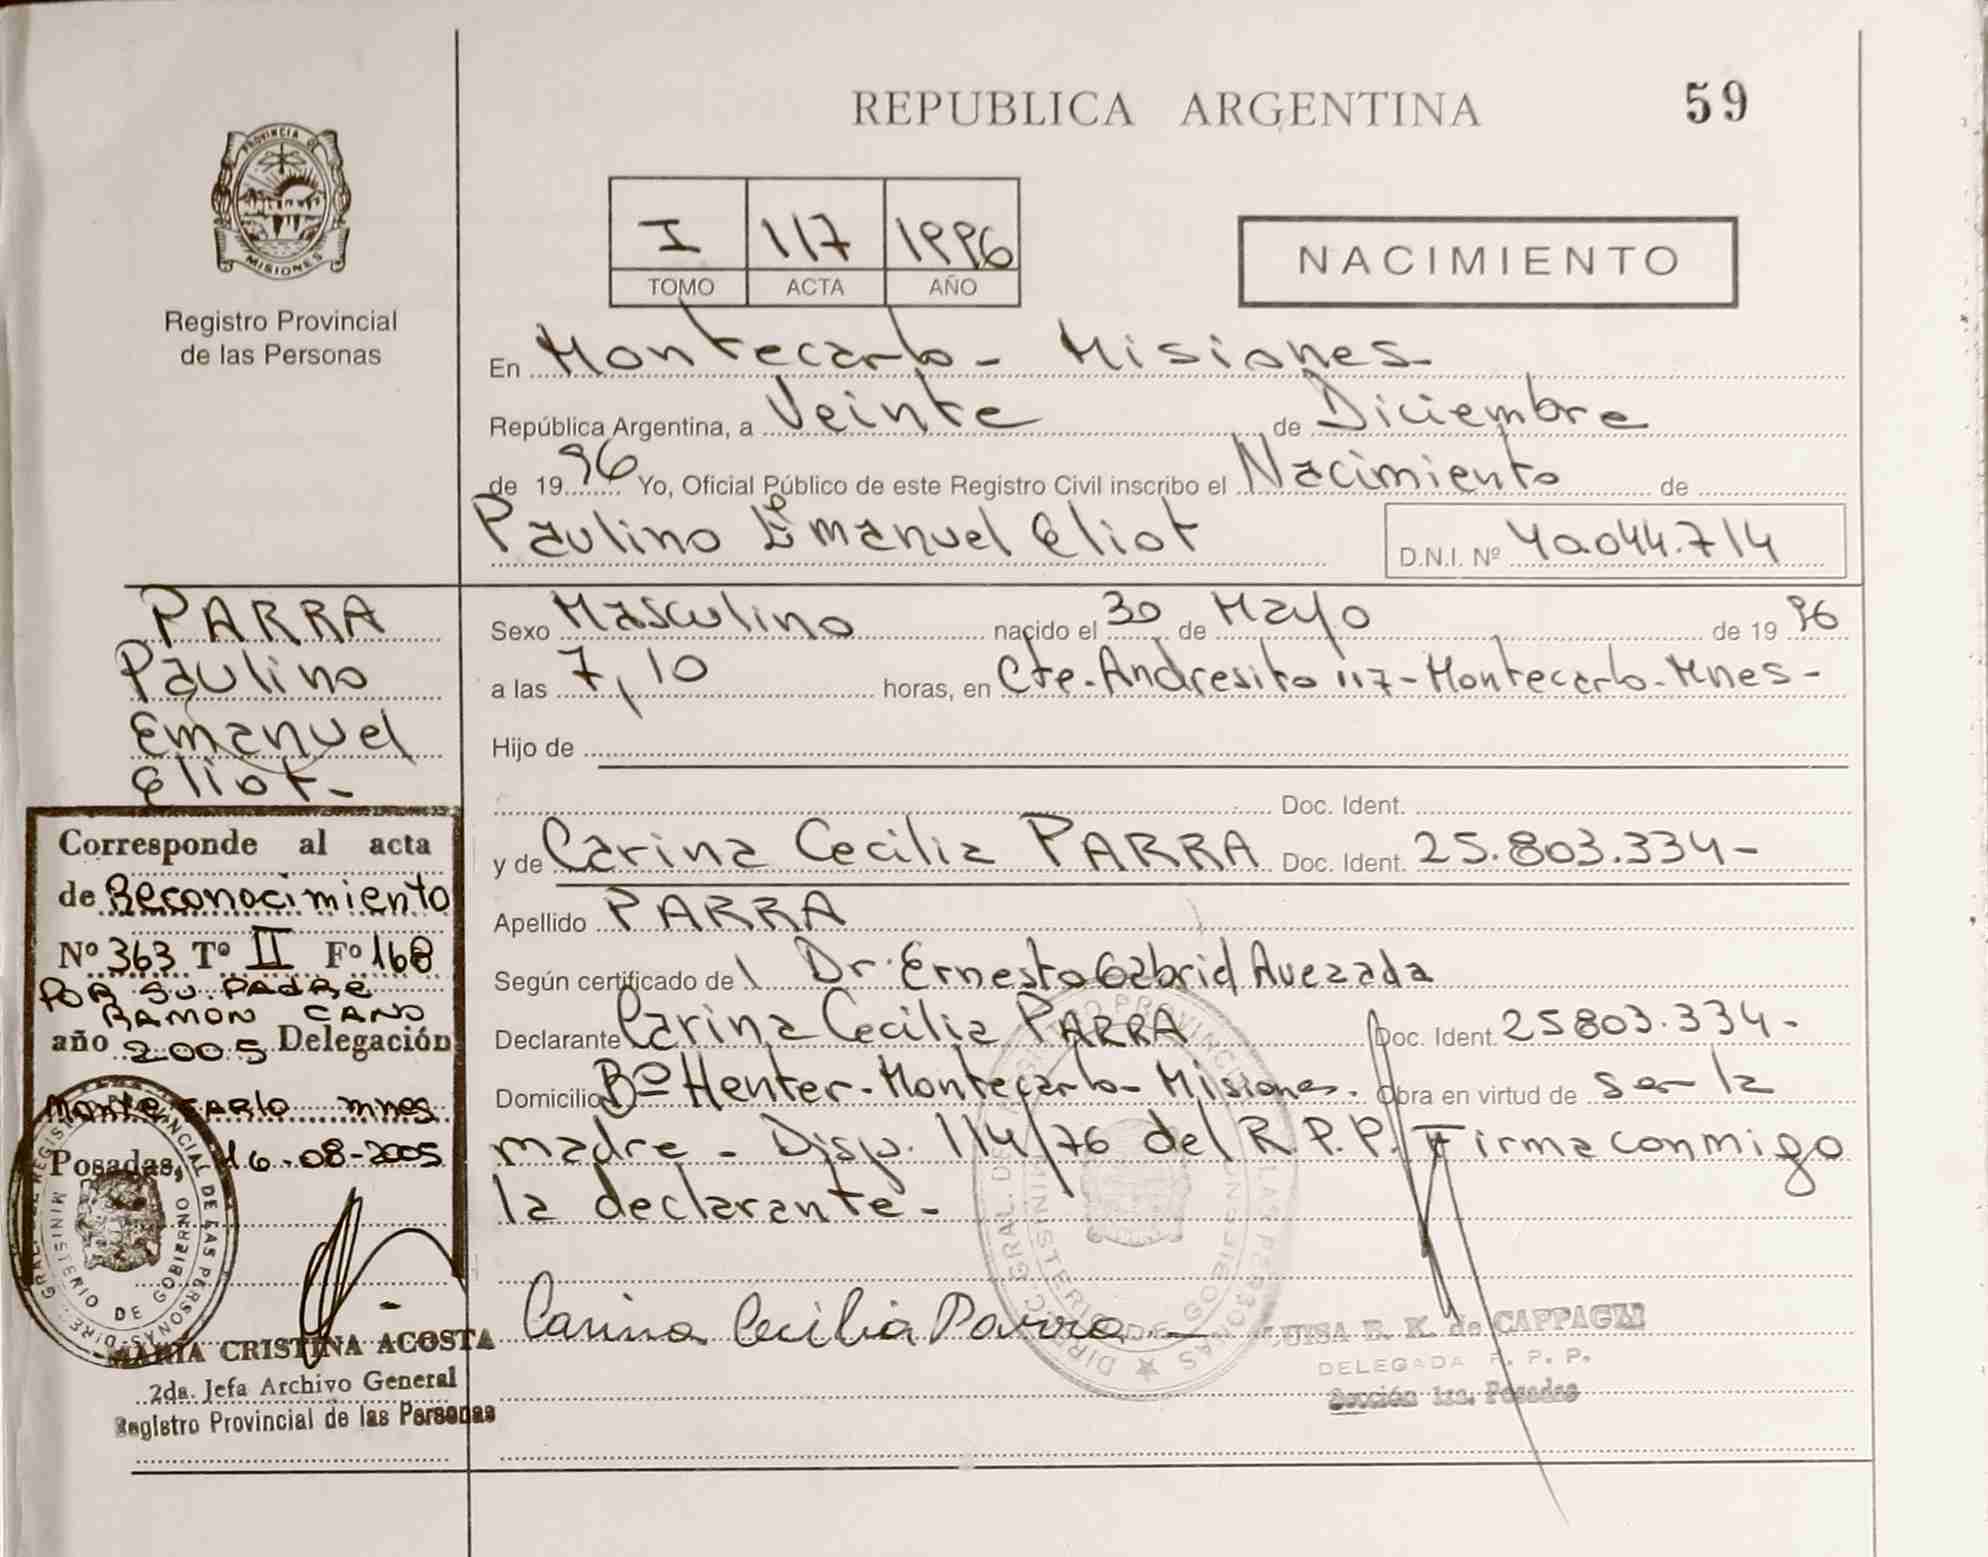 REPUBLICA ARGENTINA 59
PROVINCIA DE
MISIONES
Registro Provincial
de las Personas
I 117 1996
TOMO ACTA AÑO
NACIMIENTO
En Montecarlo - Misiones
República Argentina, a Veinte de Diciembre
de 1996 Yo, Oficial Público de este Registro Civil inscribo el Nacimiento de
Paulino Emanuel Eliot
D.N.I. Nº 40.044.714
PARRA
Paulino
Emanuel
Eliot-
Sexo Masculino nacido el 30 de Mayo de 1996
a las 7,10 horas, en Cte. Andresito 117-Montecarlo-Mnes-
Hijo de
y Doc. Ident.
y de Carina Cecilia PARRA Doc. Ident. 25.803.334-
Apellido PARRA
Según certificado del Dr. Ernesto Gabriel
Declarante Carina Cecilia PARRA Doc. Ident. 25803.334-
Domicilio Bº Henter-Montecarlo-Misiones. Obra en virtud de ser la
madre - Disp. 114/76 del R.P.P. Firma conmigo
la declarante-
Carina Cecilia Parra
Corresponde al acta
de Reconocimiento
Nº 363 Tº II Fº 168
POR SU PADRE
RAMON CANO
año 2005 Delegación
MONTECARLO mnes
Posadas, 16-08-2005
MARIA CRISTINA ACOSTA
2da. Jefa Archivo General
Registro Provincial de las Personas
DIREC. GRAL. DEL REGISTRO PROVINCIAL DE LAS PERSONAS
MINISTERIO DE GOBIERNO
LUISA R. K. de CAPPAGLI
DELEGADA R. P. P.
Sección 1ra. Posadas